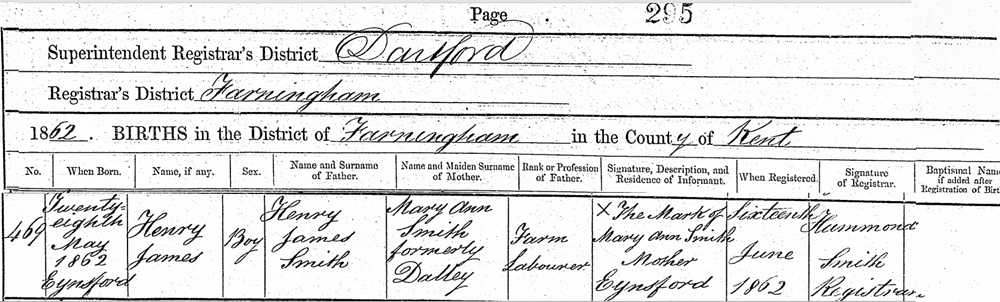 Page . 295
Superintendent Registrar's District Dartford
Registrar's District Farningham
1862. BIRTHS in the District of Farningham in the County of Kent
No.
When Born.
Name, if any.
Sex.
Name and Surname
of Father.
Name and Maiden Surname
of Mother.
Rank or Profession
of Father.
Signature, Description, and
Residence of Informant.
When Registered.
Signature
of Registrar.
Baptismal Name
if added after
Registration of Birt
469
Twenty-
eighth
May
1862
Eynsford
Henry
James
Boy
Henry
James
Smith
Mary Ann
Smith
formerly
Dalley
Farm
Labourer
X The Mark of
Mary Ann Smith
Mother
Eynsford
Sixteenth
June
1862
Hammond
Smith
Registrar.